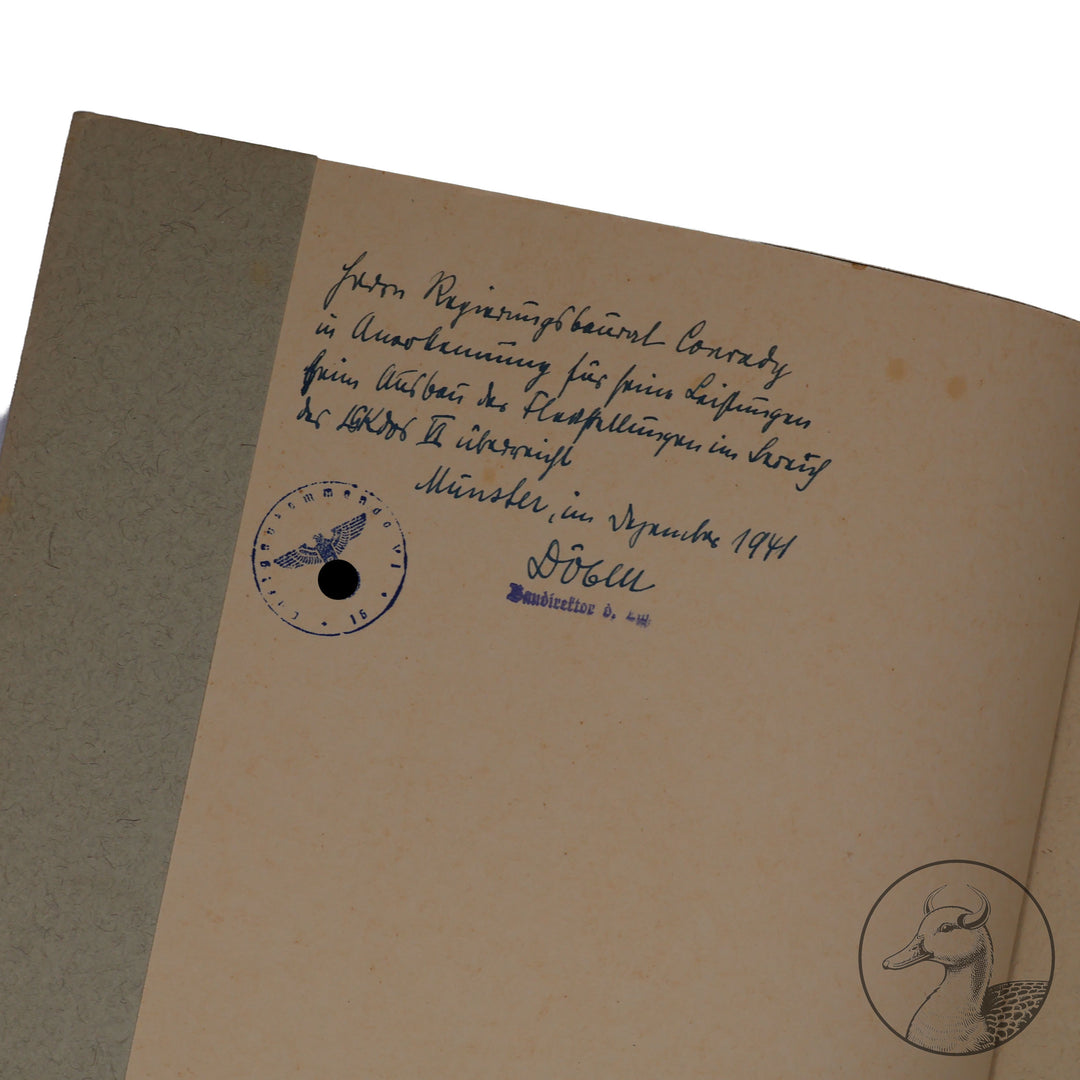 Herrn Regierungsbaurat Conrady
in Anerkennung für seine Leistungen
beim Ausbau der Flakstellungen im Bereich
des LGKdos VI überreicht
Münster, im Dezember 1941
Luftgaukommando VI
Baudirektor d.